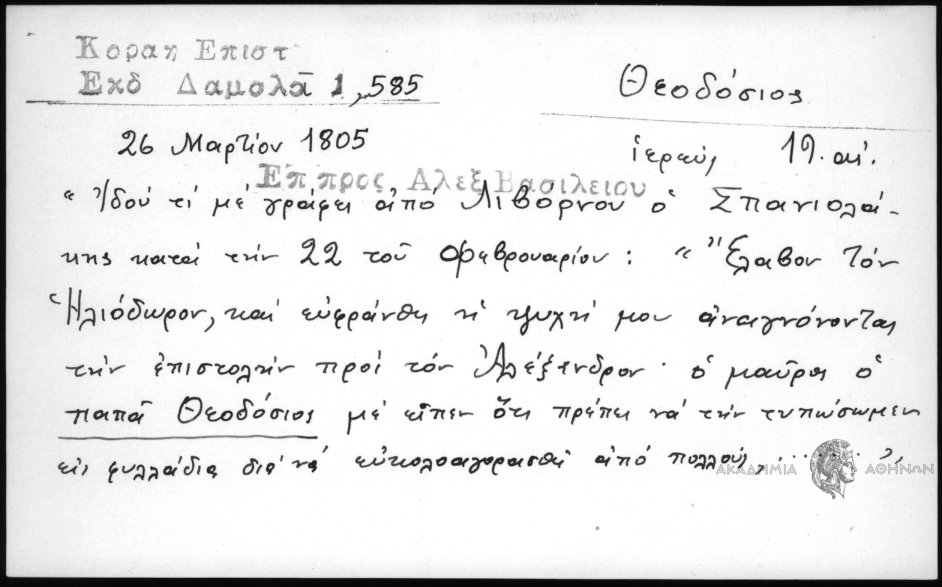 Κοραη Επιστ
Εκδ Δαμαλᾶ 1,585
Θεοδόσιος
26 Μαρτίου 1805
ἱερεύς 19. αἰ.
Επ προς Αλεξ Βασιλειου
"Ἰδού τί μέ γράφει ἀπό Λιβόρνου ὁ Σπανιολά-
κης κατά τήν 22 τοῦ Φεβρουαρίου : "Ἔλαβον τόν
Ἡλιόδωρον, καί εὐφράνθη ἡ ψυχή μου ἀναγνόνοντας
τήν ἐπιστολήν πρός τόν Ἀλέξανδρον· ὁ μαῦρος ὁ
παπᾶ Θεοδόσιος μέ εἶπεν ὅτι πρέπει νά τήν τυπώσωμεν
εἰς φυλλάδια διά νά εὐκολοαγορασθῆ ἀπό πολλούς, ...... "
ΑΚΑΔΗΜΙΑ ΑΘΗΝΩΝ